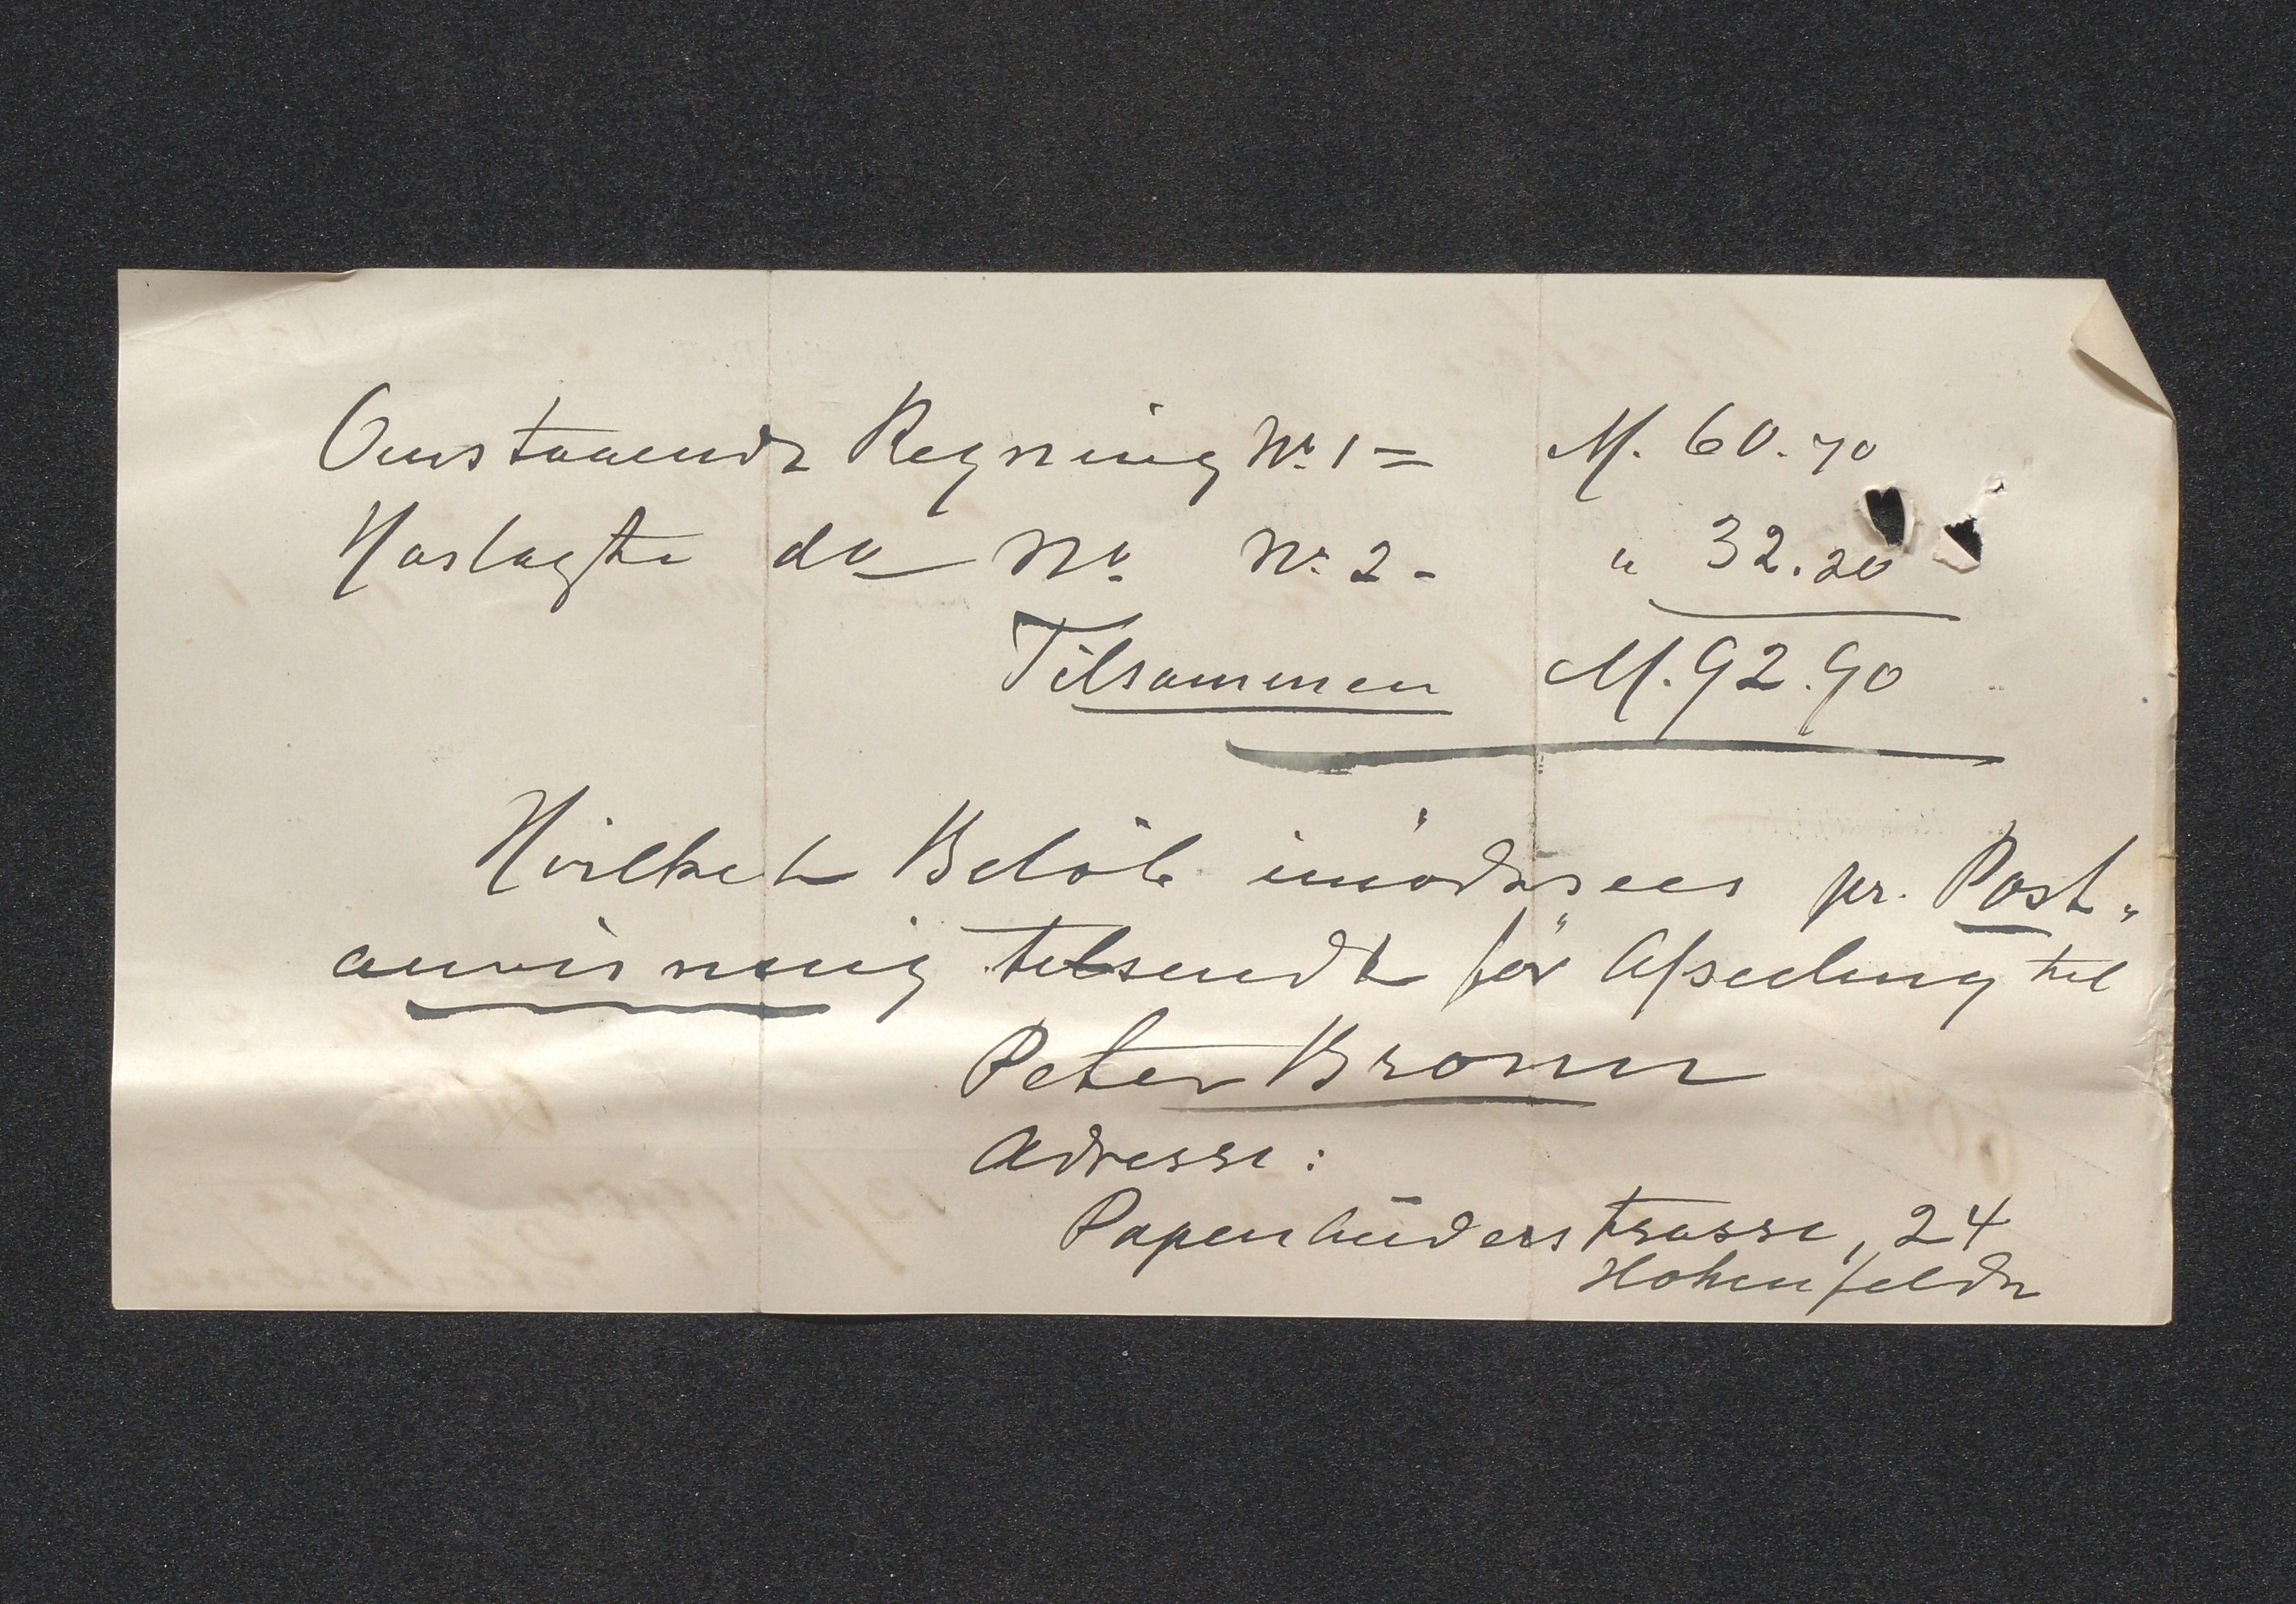 Omstaaende Regning No. 1 = M. 60.70
Haslagte do No. No. 2 - " 32.20
Tilsammen M. 92.90
Hvilket Beløb imødesees pr. Post-
anvisning tilsendt før Afseeling til
Peter Bromn
Adresse:
Papenhuderstrasse, 24
Hohenfelde